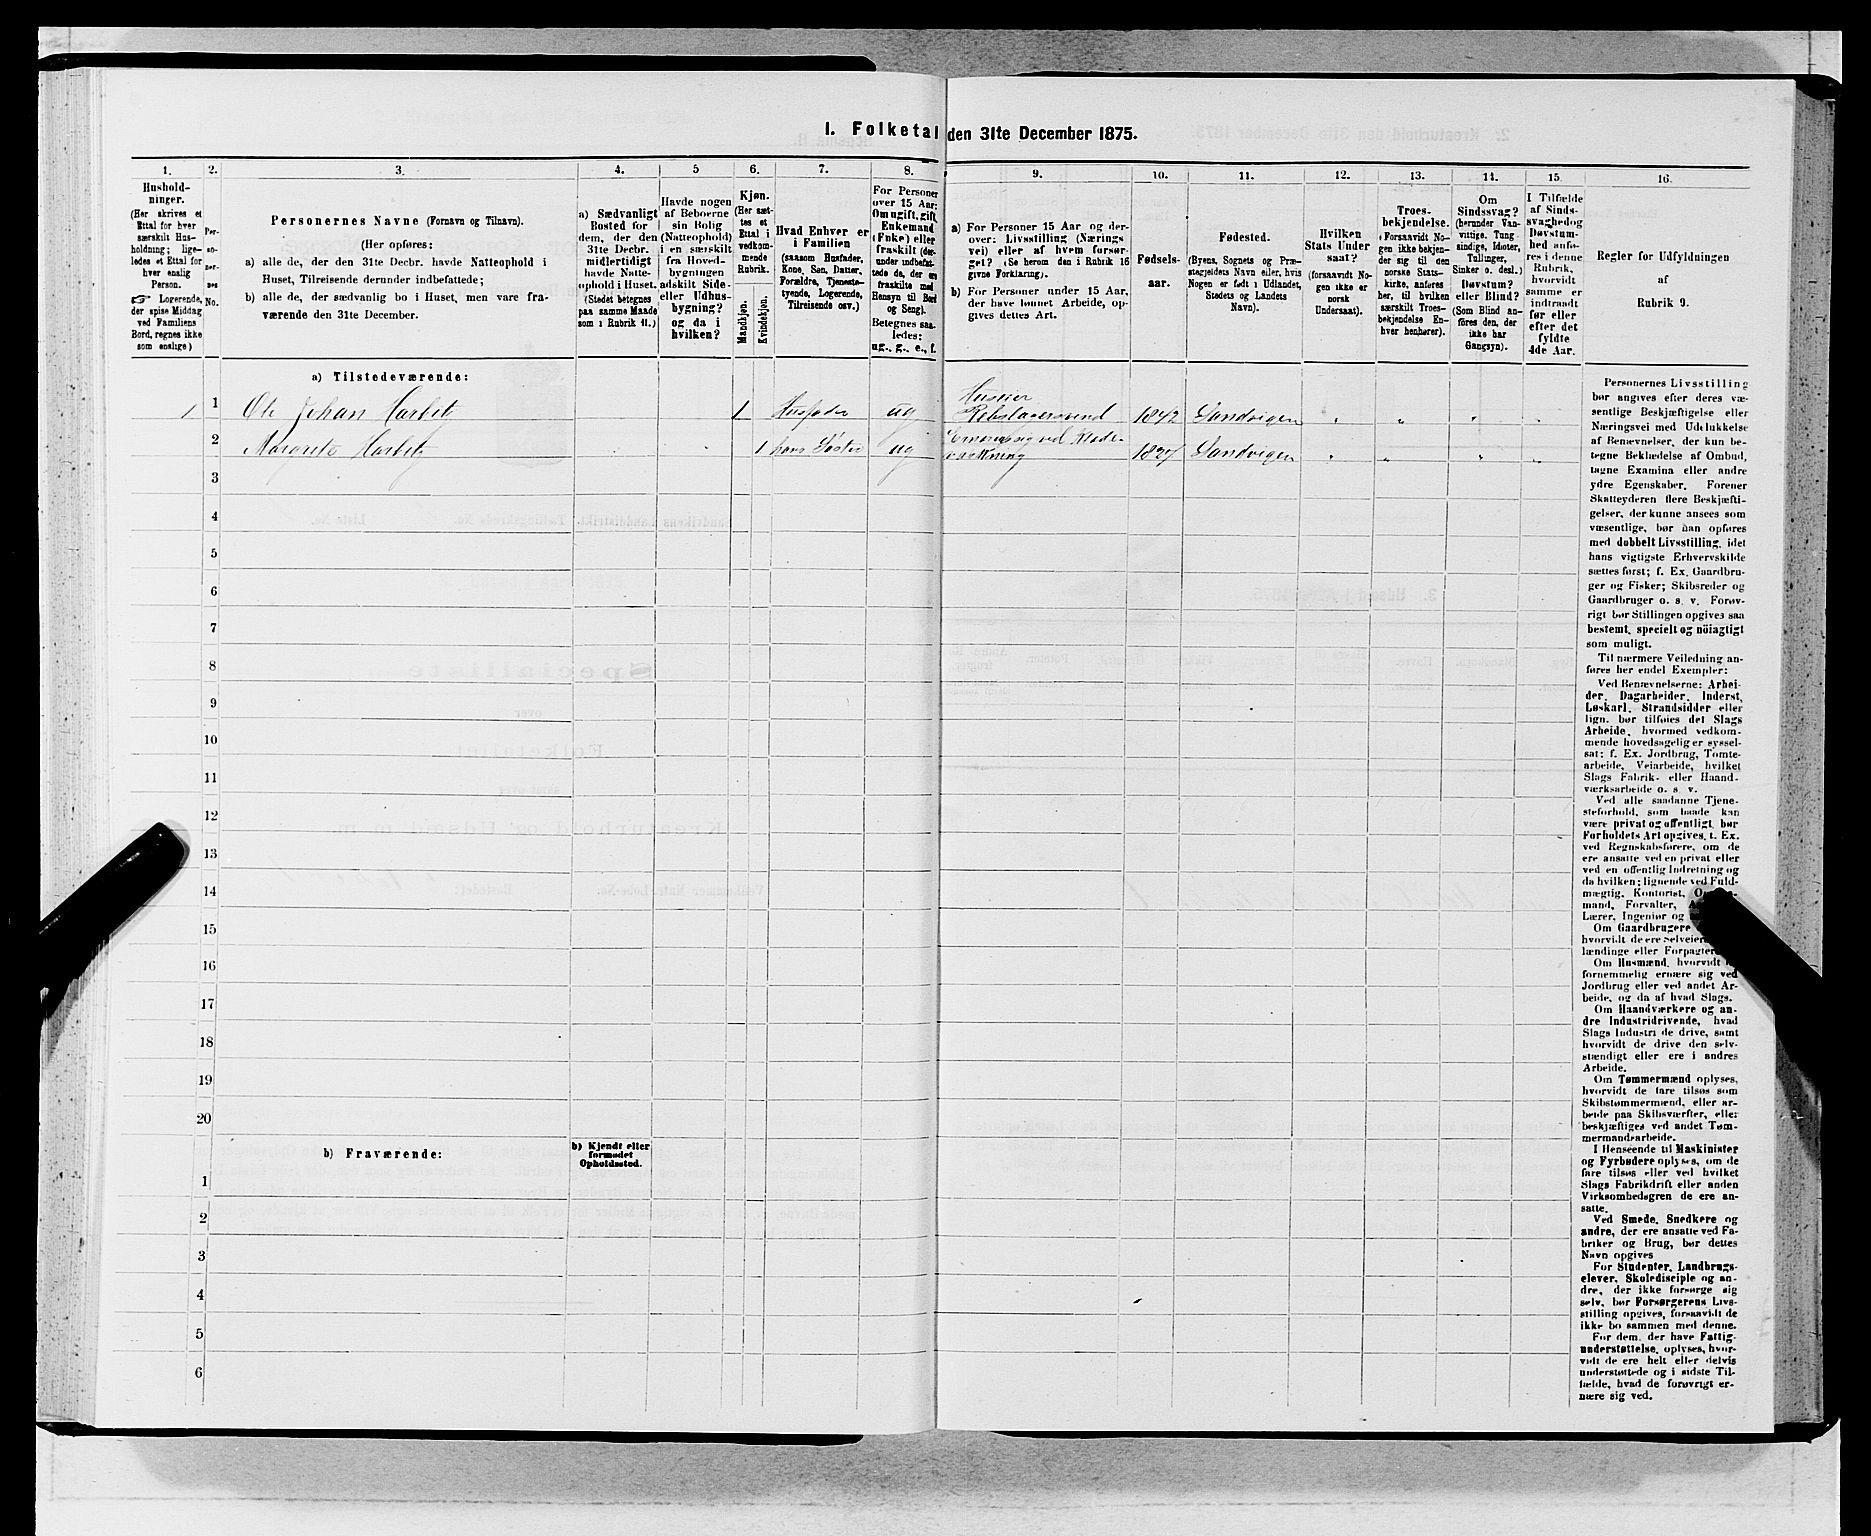 1. Folketal den 31te December 1875.
1.
Hushold-
ninger.
(Her skrives et
Ettal for hver
særskilt Hus-
holdning; lige-
ledes et Ettal for
hver enslig
Person.
☞ Logerende,
der spise Middag
ved Familiens
Bord, regnes ikke
som enslige)
2.
Per-
so-
ner-
nes
No.
3.
Personernes Navne (Fornavn og Tilnavn).
(Her opføres:
a) alle de, der den 31te Decbr. havde Natteophold i
Huset, Tilreisende derunder indbefattede;
b) alle de, der sædvanlig bo i Huset, men vare fra-
værende den 31te December.
4.
a) Sædvanligt
Bosted for
dem, der den
31te Decbr.
midlertidigt
havde Natte-
ophold i Huset.
(Stedet betegnes
paa samme Maade
som i Rubrik 11.)
5
Havde nogen
af Beboerne
sin Bolig
(Natteophold)
i en særskilt
fra Hoved-
bygningen
adskilt Side-
eller Udhus-
bygning?
og da i
hvilken?
6.
Kjøn.
(Her sæt-
tes et
Ettal i
vedkom-
mende
Rubrik.
Mandkjøn.
Kvindekjøn.
7.
Hvad Enhver er
i Familien
(saasom Husfader,
Kone, Søn, Datter,
Forældre, Tjeneste-
tyende, Logerende,
Tilreisende osv.)
8.
For Personer
over 15 Aar:
Om ugift, gift,
Enkemand
(Enke) eller
fraskilt (der-
under indbefat-
tede de, der ere
fraskilte med
Hensyn til Bord
og Seng).
Betegnes saa-
ledes:
ug., g., e., f.
9.
a) For Personer 15 Aar og der-
over: Livsstilling (Nærings
vei) eller af hvem forsør-
get? (Se herom den i Rubrik 16
givne Forklaring).
b) For Personer under 15 Aar,
der have lønnet Arbeide, op-
gives dettes Art.
10.
Fødsels-
aar.
11.
Fødested.
(Byens, Sognets og Præ-
stegjeldets Navn eller, hvis
Nogen er født i Udlandet,
Stedets og Landets
Navn).
12.
Hvilken
Stats Under
saat?
(forsaavidt No-
gen ikke er
norsk
Undersaat).
13.
Troes-
bekjendelse.
(Forsaavidt No-
gen ikke bekjen-
der sig til den
norske Stats-
kirke, anføres
her, til hvilken
særskilt Troes-
bekjendelse En-
hver henhører).
14.
Om
Sindssvag?
(herunder Van-
vittige, Tung-
sindige, Idioter,
Tullinger,
Sinker o. desl.)
Døvstum?
eller Blind?
(Som Blind an-
føres den, der
ikke har
Gangsyn).
15.
I Tilfælde
af Sinds-
svaghed og
Døvstum-
hed anfø-
res i denne
Rubrik,
hvorvidt
samme er
indtraadt
før eller
efter det
fyldte
4de Aar.
16.
Regler for Udfyldningen
af
Rubrik 9.
a) Tilstedeværende:
1 1 Ole Johan Harbitz 1 Husfader ug Huseier
Rebslagersvend 1842 Sandvigen
2 Margrete Harbitz 1 hans Søster ug 1827 Sandvigen
3
4
5
6
7
8
9
10
11
12
13
14
15
16
17
18
19
20
b) Fraværende:
b) Kjendt eller
formodet
Opholdssted.
1
2
3
4
5
6
Personernes Livsstilling
bør angives efter deres væ-
sentlige Beskjæftigelse eller
Næringsvei med Udelukkelse
af Benævnelser, der kun be-
tegne Beklædelse af Ombud,
tagne Examina eller andre
ydre Egenskaber. Forener
Skatteyderen flere Beskjæfti-
gelser, der kunne ansees som
væsentlige, bør han opføres
med dobbelt Livsstilling, idet
hans vigtigste Erhvervskilde
sættes først; f. Ex. Gaardbru-
ger og Fisker; Skibsreder og
Gaardbruger o. s. v. Forøv-
rigt bør Stillingen opgives saa
bestemt, specielt og nöiagtigt
som muligt.
Til nærmere Veiledning an-
føres her endel Exempler:
Ved Benævnelserne: Arbei-
der, Dagarbeider, Inderst,
Løskarl, Strandsidder eller
lign. bør tilføies det Slags
Arbeide, hvormed vedkom-
mende hovedsagelig er syssel-
sat; f. Ex. Jordbrug, Tomte-
arbeide, Veiarbeide, hvilket
Slags Fabrik- eller Haand-
værksarbeide o. s. v.
Ved alle saadanne Tjene-
steforhold, som baade kan
være privat og offentligt, bør
Forholdets Art opgives, t. Ex.
ved Regnskabsførere, om de
ere ansatte ved en privat eller
ved en offentlig Indretning og
da hvilken; lignende ved Fuld-
mægtig, Kontorist,
mand, Forvalter,
Lærer, Ingeniør og
Om Gaardbrugere
hvorvidt de ere Selveiere
lændinge eller Forpagtere
Om Husmænd, hvorvidt
fornemmelig ernære sig ved
Jordbrug eller ved andet Ar-
beide, og da af hvad Slags.
Om Haandværkere og an-
dre Industridrivende, hvad
Slags Industri de drive, samt
hvorvidt de drive den selv-
stændigt eller ere i andres
Arbeide.
Om Tømmermænd oplyses,
hvorvidt de fare tilsøs som
Skibstømmermænd, eller ar-
beide paa Skibsværfter, eller
beskjæftiges ved andet Tøm-
mermandsarbeide.
I Henseende til Maskinister
og Fyrbødere oplyses, om de
fare tilsøs eller ved hvilket
Slags Fabrikdrift eller anden
Virksomhedsgren de ere an-
satte.
Ved Smede, Snedkere og
andre, der ere ansatte ved Fa-
briker og Brug, bør dettes
Navn opgives
For Studenter, Landbrugs-
elever, Skoledisciple og an-
dre, der ikke forsørge sig
selv, bør Forsørgerens Livs-
stilling opgives, forsaavidt de
ikke bo sammen med denne.
For dem, der have Fattig-
understøttelse, oplyses, hvor-
vidt de ere helt eller delvis
understøttede og i sidste Til-
fælde, hvad de forøvrigt er-
nære sig ved.